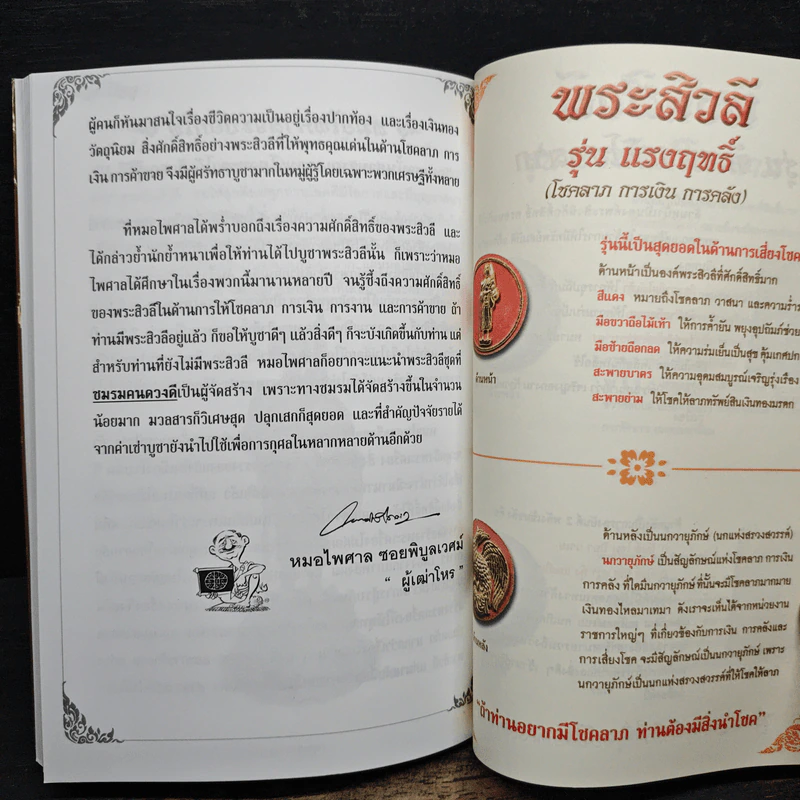 ผู้คนก็หันมาสนใจเรื่องชีวิตความเป็นอยู่เรื่องปากท้อง และเรื่องเงินทอง
วัตถุนิยม สิ่งศักดิ์สิทธิ์อย่างพระสิวลีที่ให้พุทธคุณเด่นในด้านโชคลาภ การ
เงิน การค้าขาย จึงมีผู้ศรัทธาบูชามากในหมู่ผู้รู้โดยเฉพาะพวกเศรษฐีทั้งหลาย
ที่หมอไพศาลได้พร่ำบอกถึงเรื่องความศักดิ์สิทธิ์ของพระสิวลี และ
ได้กล่าวย้ำนักย้ำหนาเพื่อให้ท่านได้ไปบูชาพระสิวลีนั้น ก็เพราะว่าหมอ
ไพศาลได้ศึกษาในเรื่องพวกนี้มานานหลายปี จนรู้ซึ้งถึงความศักดิ์สิทธิ์
ของพระสิวลีในด้านการให้โชคลาภ การเงิน การงาน และการค้าขาย ถ้า
ท่านมีพระสิวลีอยู่แล้ว ก็ขอให้บูชาดีๆ แล้วสิ่งดีๆ ก็จะบังเกิดขึ้นกับท่าน แต่
สำหรับท่านที่ยังไม่มีพระสิวลี หมอไพศาลก็อยากจะแนะนำพระสิวลีชุดที่
ชมรมคนดวงดีเป็นผู้จัดสร้าง เพราะทางชมรมได้จัดสร้างขึ้นในจำนวน
น้อยมาก มวลสารก็วิเศษสุด ปลุกเสกก็สุดยอด และที่สำคัญปัจจัยรายได้
จากค่าเช่าบูชายังนำไปใช้เพื่อการกุศลในหลากหลายด้านอีกด้วย
หมอไพศาล ซอยพิบูลเวศม์
" ผู้เฒ่าโหร "
พระสิวลี
รุ่น แรงฤทธิ์
(โชคลาภ การเงิน การคลัง)
รุ่นนี้เป็นสุดยอดในด้านการเสี่ยงโชค
ด้านหน้าเป็นองค์พระสิวลีที่ศักดิ์สิทธิ์มาก
สีแดง หมายถึงโชคลาภ วาสนา และความร่ำร
มือขวาถือไม้เท้า ให้การค้ำยัน พยุงอุปถัมภ์ช่วย
มือซ้ายถือกลด ให้ความร่มเย็นเป็นสุข คุ้มเกศปก
สะพายบาตร ให้ความอุดมสมบูรณ์เจริญรุ่งเรือง
สะพายย่าม ให้โชคให้ลาภทรัพย์สินเงินทองมรดก
ด้านหน้า
ด้านหลังเป็นนกวายุภักษ์ (นกแห่งสรวงสวรรค์)
นกวายุภักษ์ เป็นสัญลักษณ์แห่งโชคลาภ การเงิน
การคลัง ที่ใดมีนกวายุภักษ์ ที่นั้นจะมีโชคลาภมากมาย
เงินทองไหลมาเทมา ดังเราจะเห็นได้จากหน่วยงาน
ราชการใหญ่ๆ ที่เกี่ยวข้องกับการเงิน การคลังและ
การเสี่ยงโชค จะมีสัญลักษณ์เป็นนกวายุภักษ์ เพราะ
นกวายุภักษ์เป็นนกแห่งสรวงสวรรค์ที่ให้โชคให้ลาภ
"ถ้าท่านอยากมีโชคลาภ ท่านต้องมีสิ่งนำโชค"